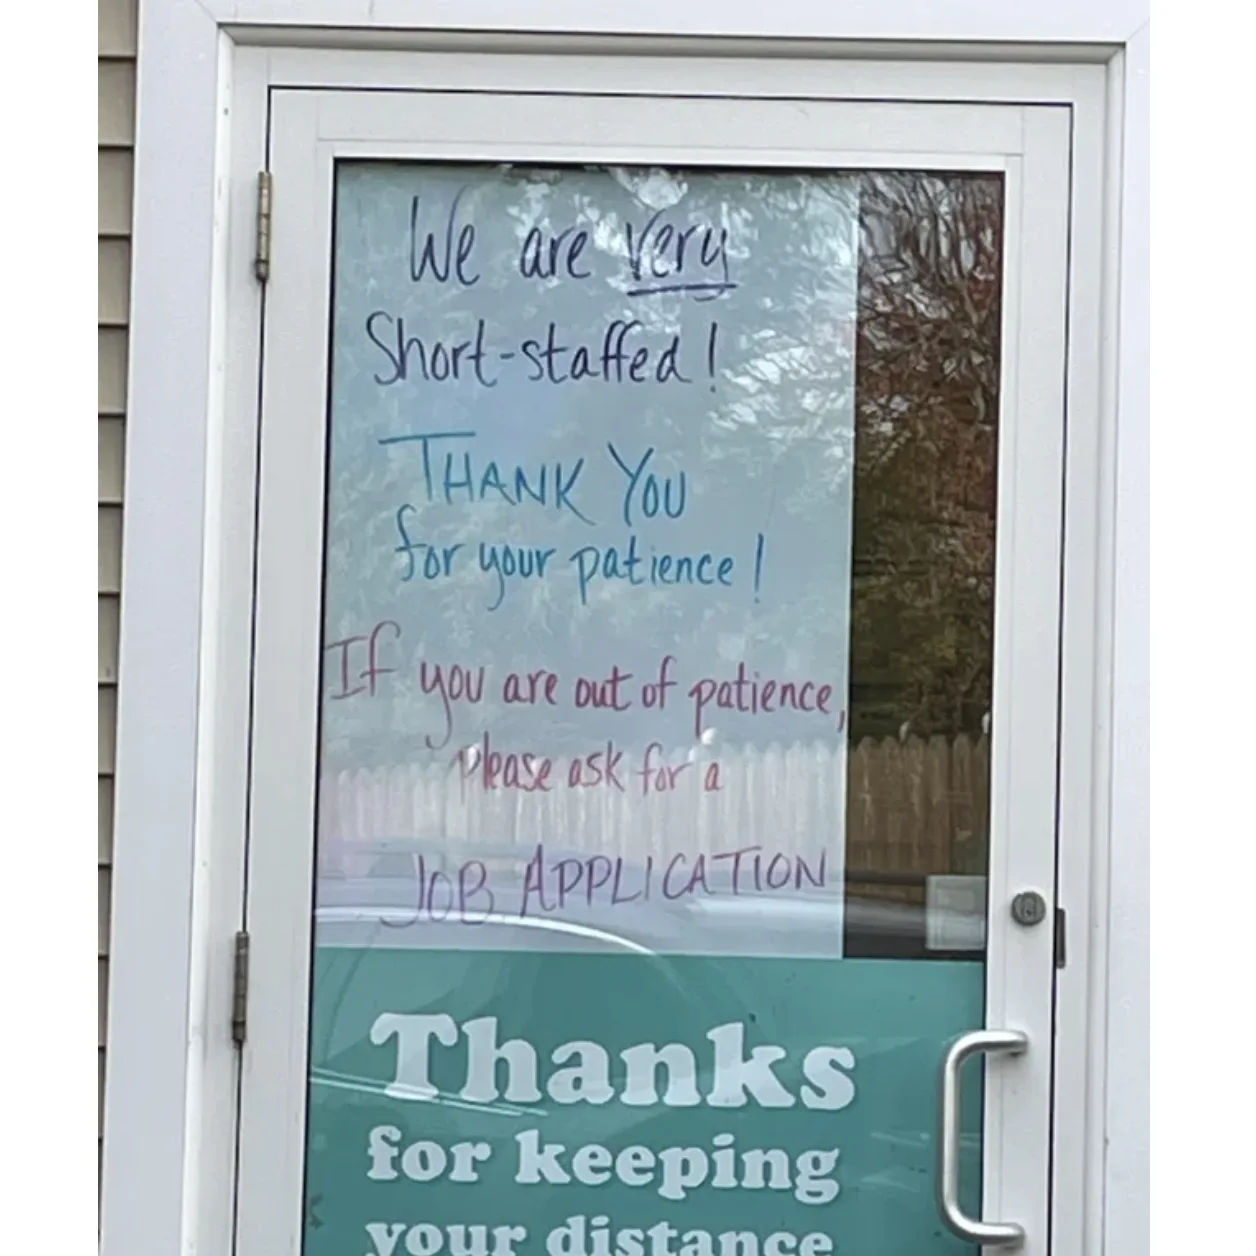 We are very
Short-staffed!
THANK YOU
for your patience!
If you are out of patience,
please ask for a
JOB APPLICATION
Thanks
for keeping
your distance